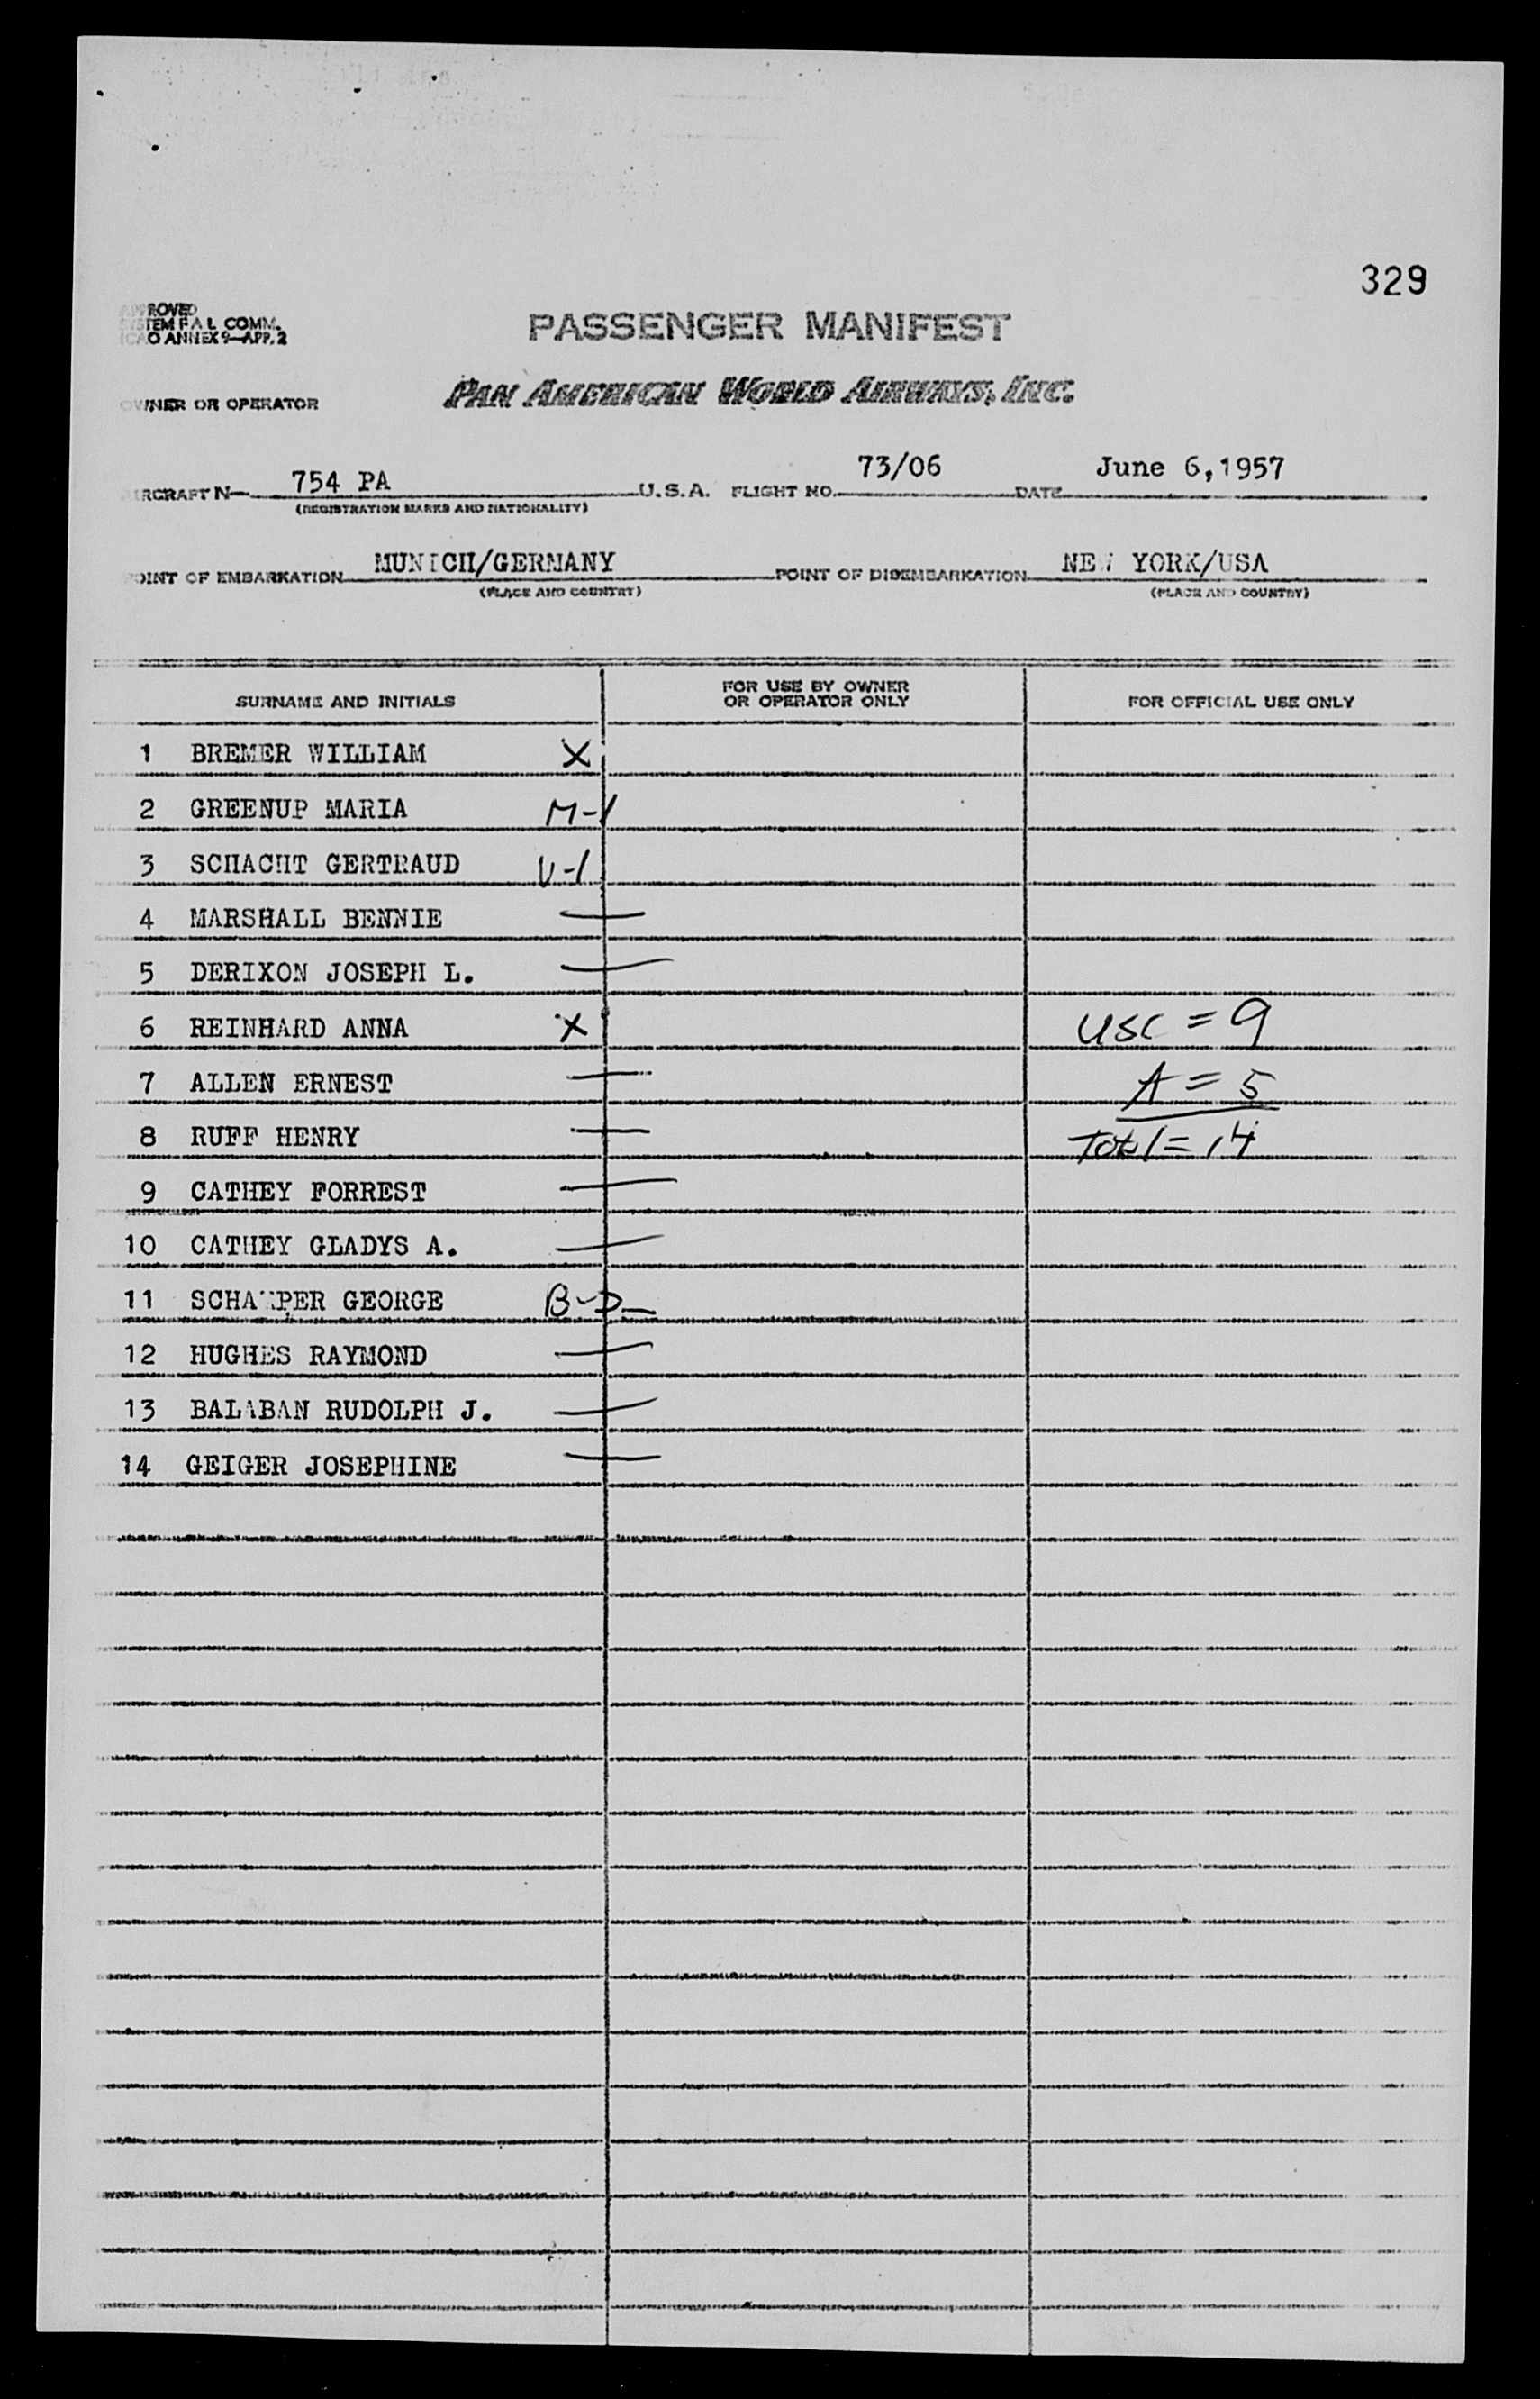 329
ROVED
TEM F A L COMM.
O ANNEX 9—APP. 2
PASSENGER MANIFEST
OWNER OR OPERATOR PAN AMERICAN WORLD AIRWAYS, INC.
AIRCRAFT N— 754 PA U.S.A. FLIGHT NO. 73/06 DATE June 6,1957
(REGISTRATION MARKS AND NATIONALITY)
POINT OF EMBARKATION MUNICH/GERMANY POINT OF DISEMBARKATION NEW YORK/USA
(PLACE AND COUNTRY) (PLACE AND COUNTRY)
SURNAME AND INITIALS FOR USE BY OWNER OR OPERATOR ONLY FOR OFFICIAL USE ONLY
1 BREMER WILLIAM X
2 GREENUP MARIA M-1
3 SCHACHT GERTRAUD V-1
4 MARSHALL BENNIE —
5 DERIXON JOSEPH L. —
6 REINHARD ANNA X USC = 9
7 ALLEN ERNEST — A = 5
8 RUFF HENRY — Total = 14
9 CATHEY FORREST —
10 CATHEY GLADYS A. —
11 GEORGE B-2
12 HUGHES RAYMOND —
13 BALABAN RUDOLPH J. —
14 GEIGER JOSEPHINE —